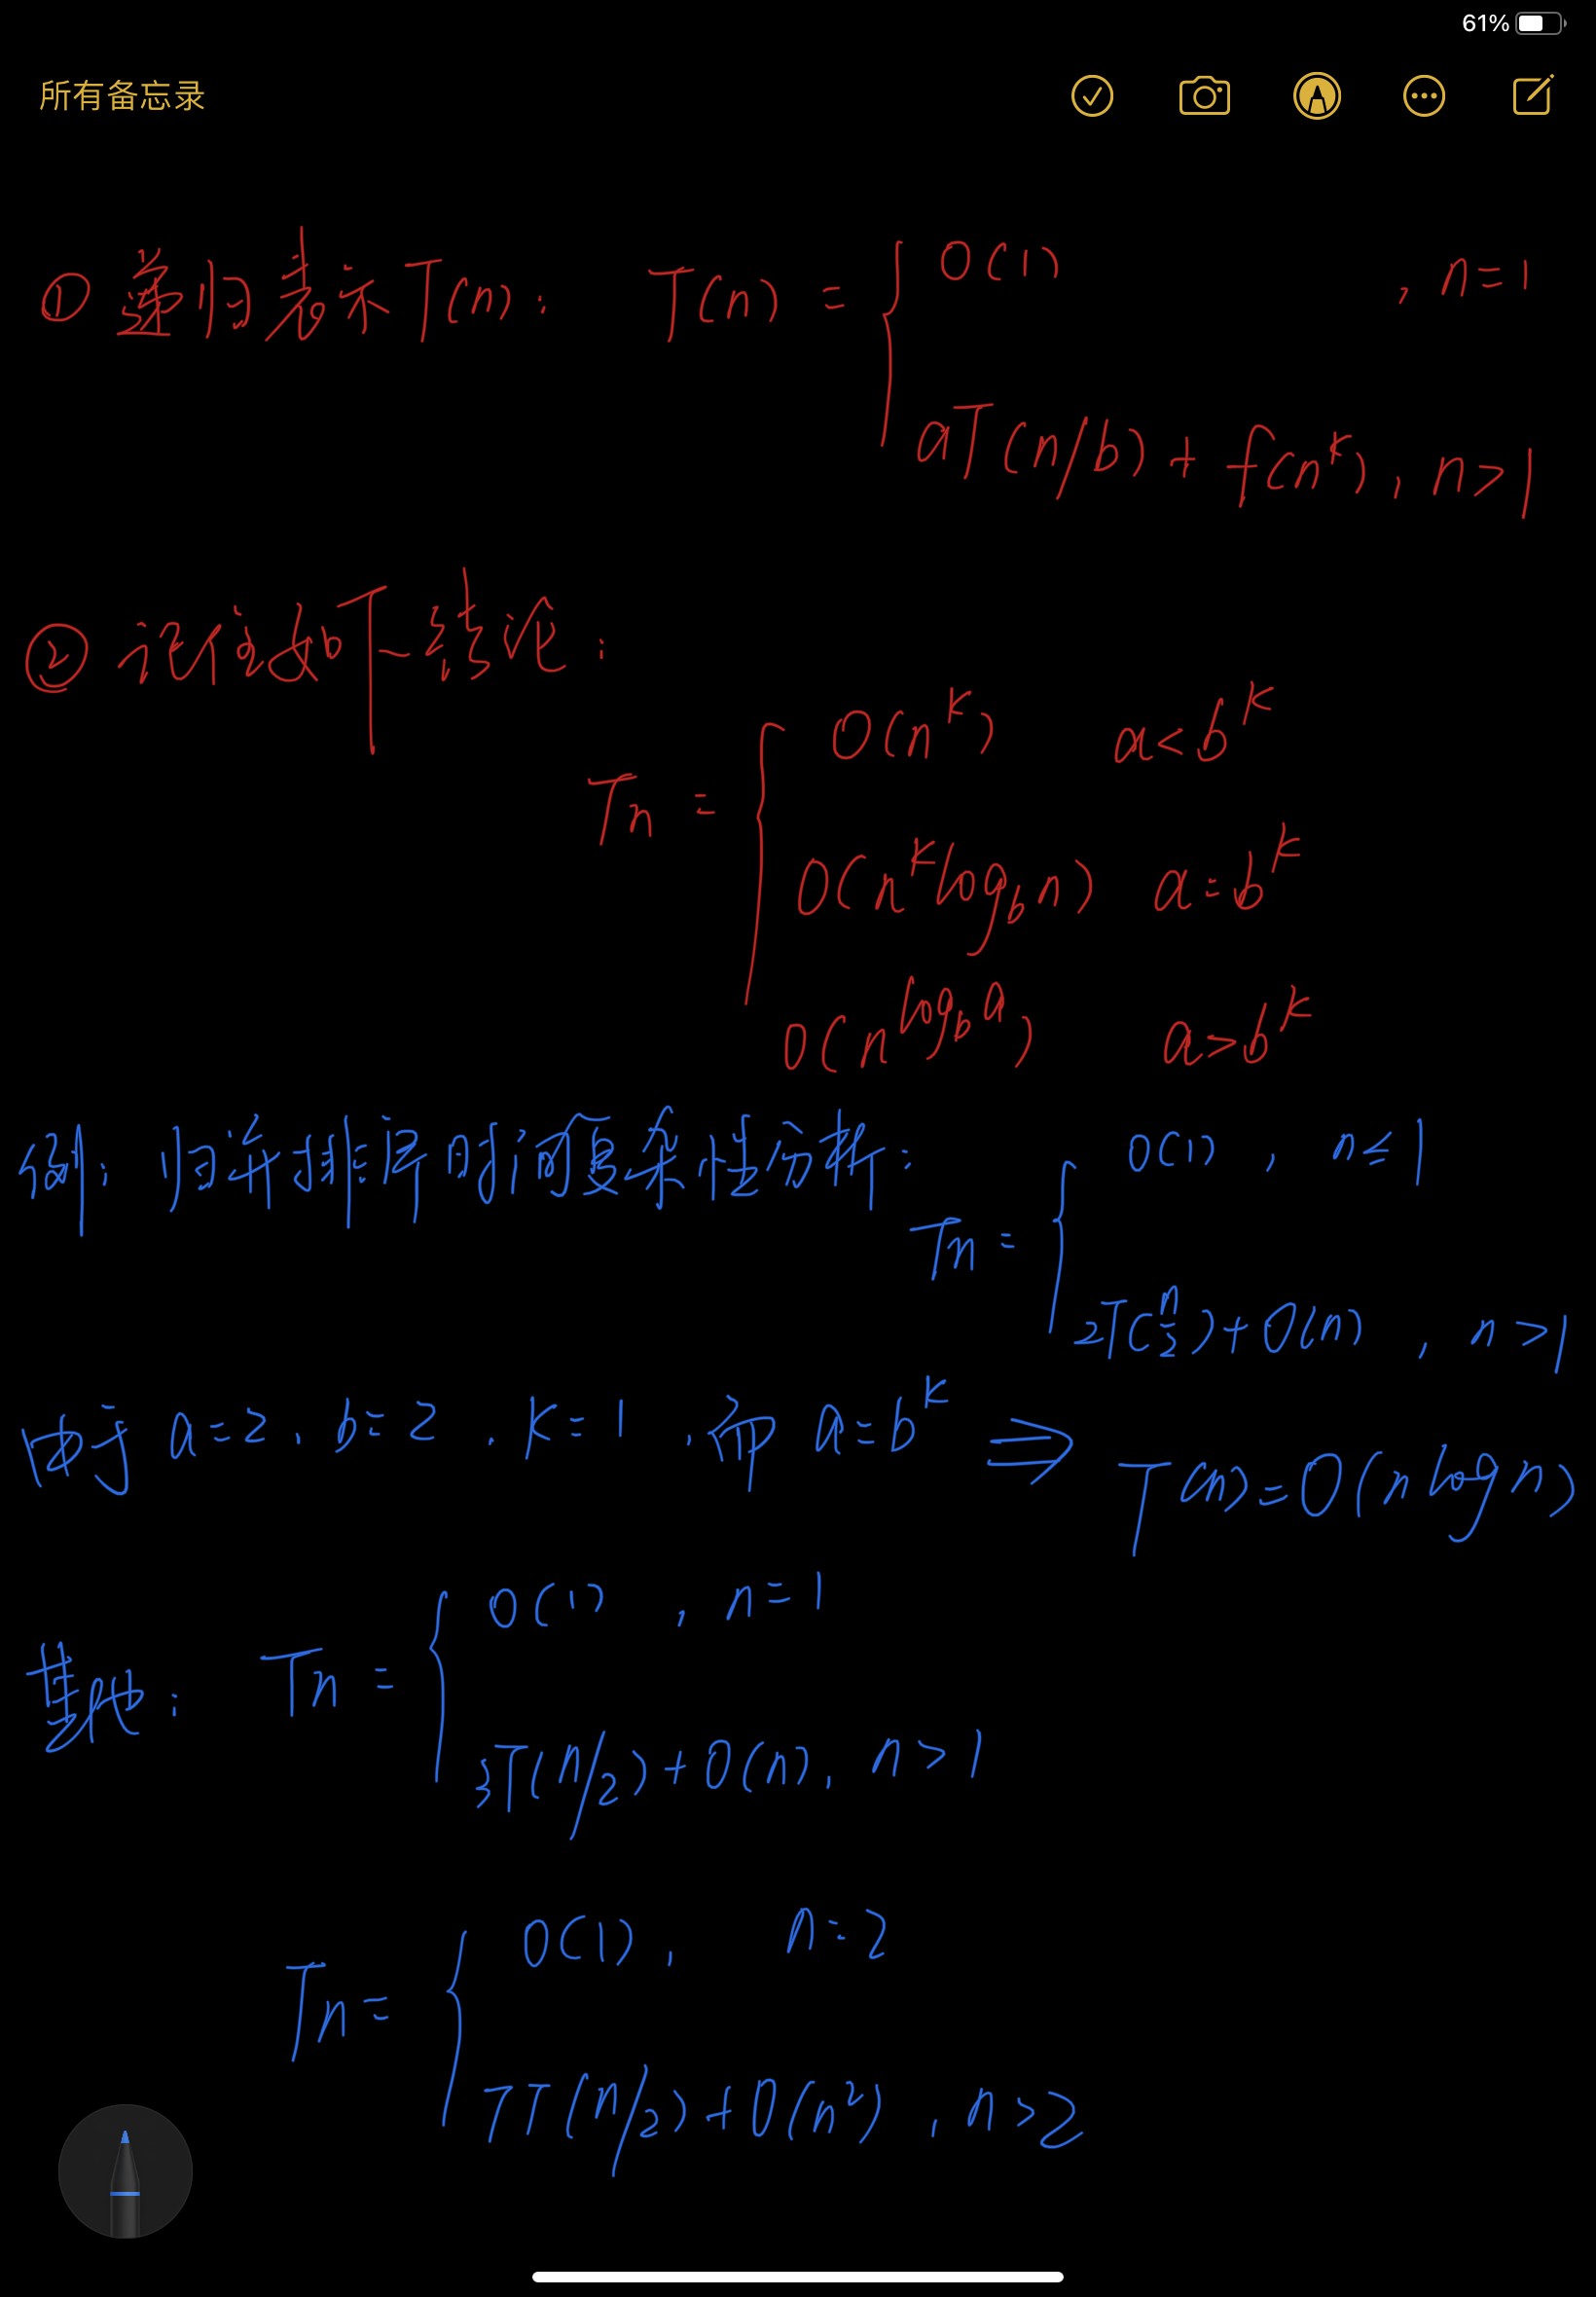 61%
所有备忘录
① 递归表示T(n): T(n) = { O(1) , n=1
aT(n/b) + f(n^k), n>1
② 记住如下结论:
Tn = { O(n^k) a<b^k
O(n^k log_b n) a=b^k
O(n^{log_b a}) a>b^k
例: 归并排序时间复杂性分析:
Tn = { O(1) , n≤1
2T(n/2)+O(n) , n>1
由于 a=2, b=2, k=1, 即 a=b^k ⇒ T(n)=O(n log n)
其他: Tn = { O(1) , n=1
3T(n/2)+O(n), n>1
Tn = { O(1), n=2
7T(n/2)+O(n²), n>2